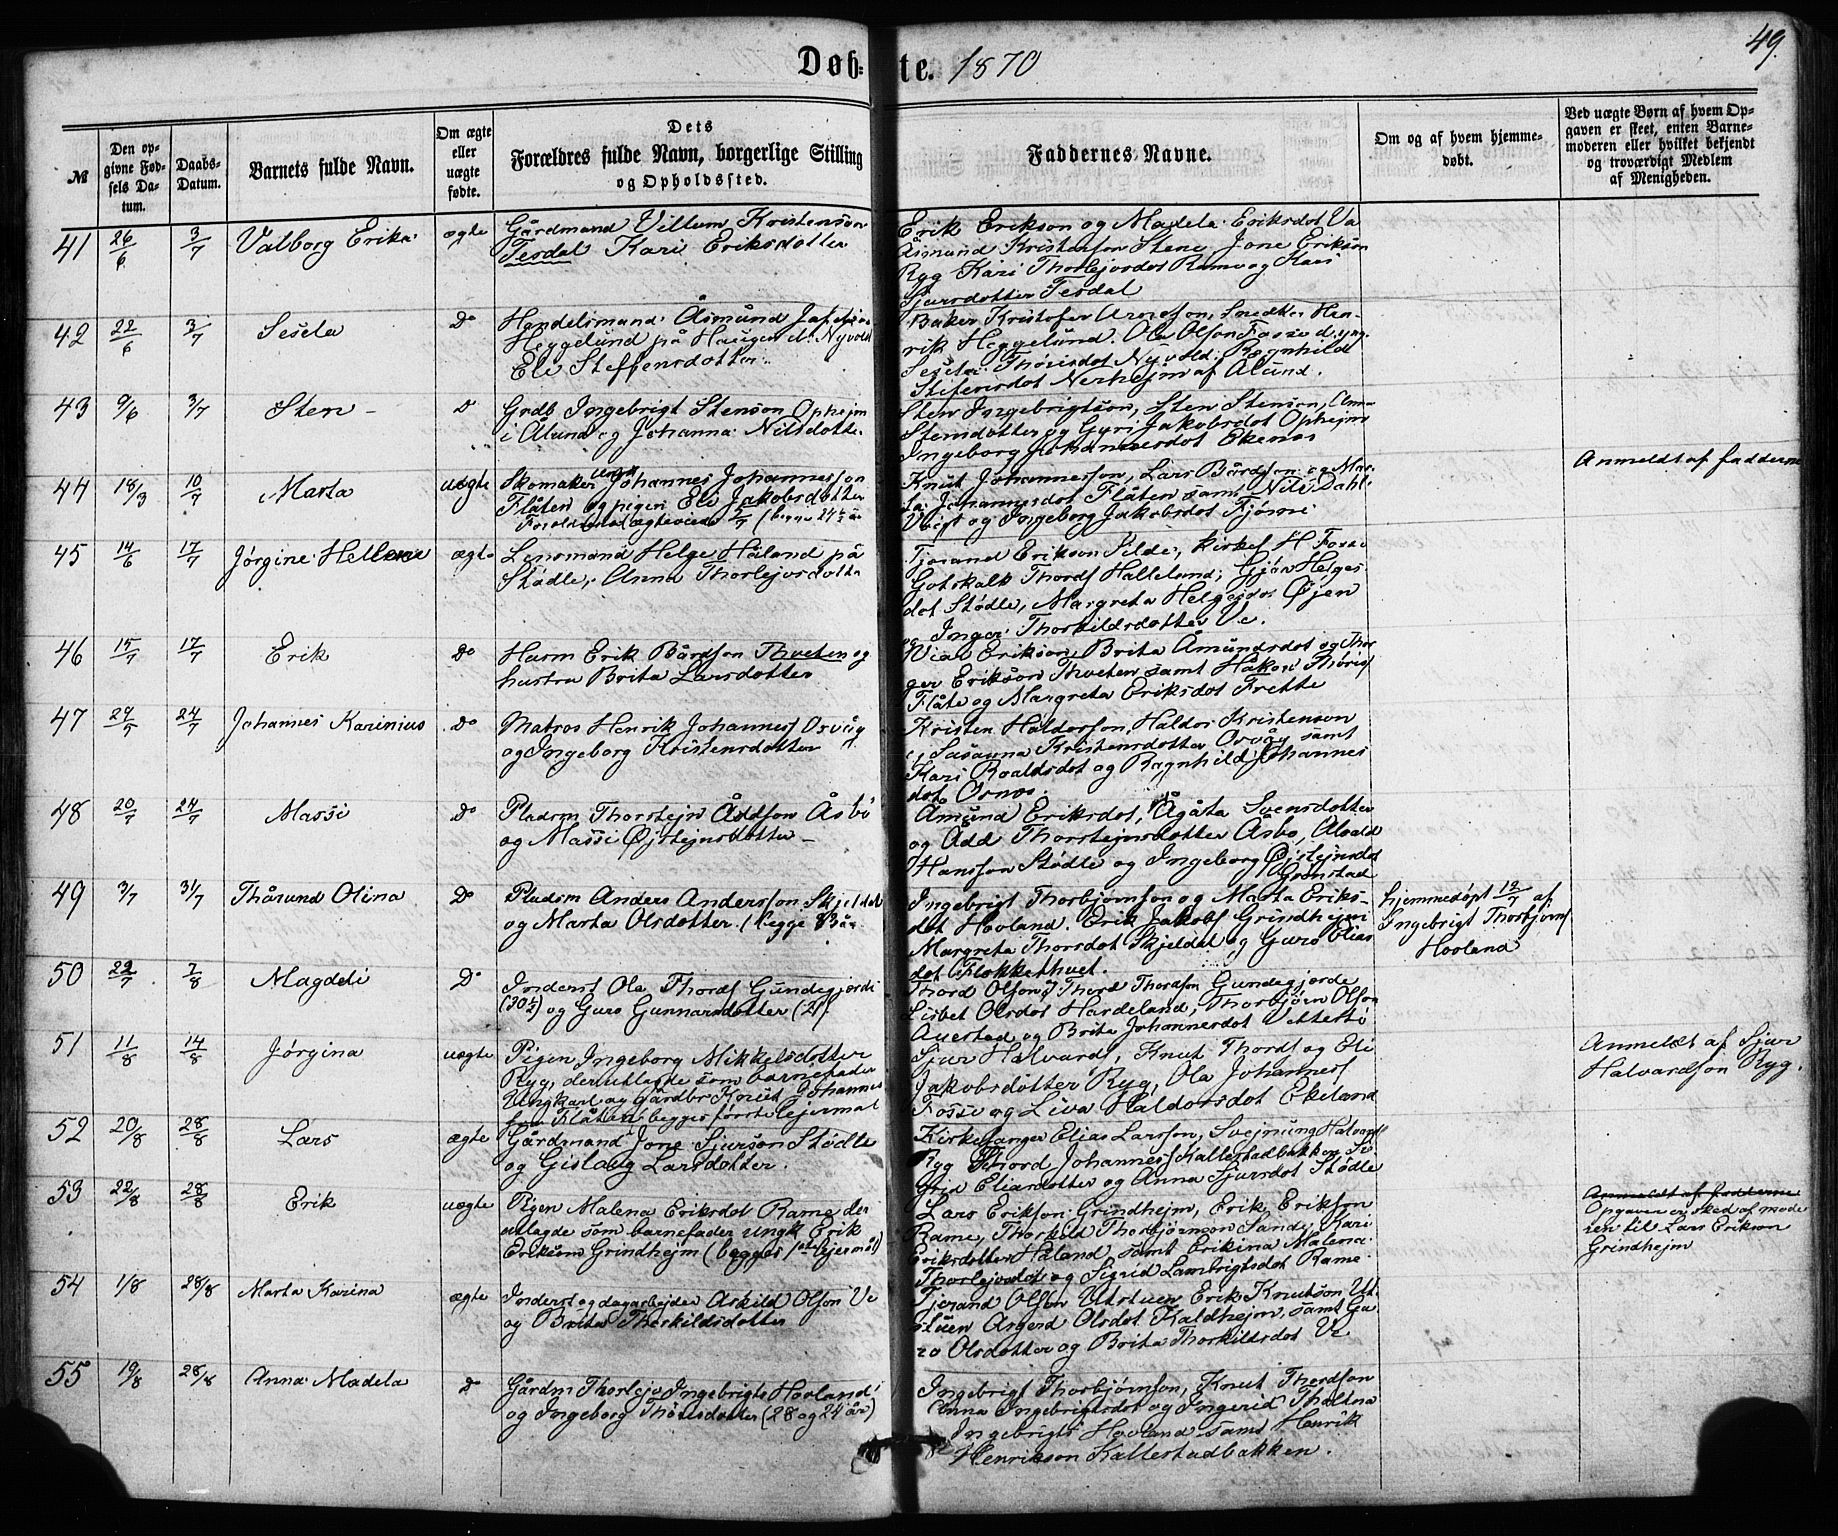 49.
Døb=te. 1870
№
Den op-
givne Fød-
sels Da-
tum.
Daabs-
Datum.
Barnets fulde Navn.
Om ægte
eller
uægte
fødte.
Dets
Forældres fulde Navn, borgerlige Stilling
og Opholdssted.
Faddernes Navne.
Om og af hvem hjemme-
døbt.
Ved uægte Børn af hvem Op-
gaven er skeet, enten Barne-
moderen eller hvilket bekjendt
og troværdigt Medlem
af Menigheden.
41 26/6 3/7 Valborg Erika ægte
Gårdmand Villum Kristenson
Tesdal Kari Eriksdotter
Erik Erikson og Madela Eriksdot Va
Åsmund Kristenson Stene Jone Erikson
Ryg Kari Thorlejvsdot Rame og Kari
Sjursdotter Tesdal
42 22/6 3/7 Sesela Do
Handelsmand Åsmund
Heggelund på Haugen d. Nyvold
Eli Steffensdotter
Baker Kristofer Arnesson, Snedker Hen-
rik Heggelund. Ola Olson Fosse d. yng.
Sesela Thorisdot Nyvold, Ragnhild
Stefensdot Nerhejm af Ølund.
43 9/6 3/7 Sten - D
Grdb Ingebrigt Stenson Ophejm
i Ølund og Johanna Nilsdotte
Sten Ingebrigtson, Sten Stenson, Anna
Stensdotter og Gyri Jakobsdot Ophejm
Ingeborg Johannesdot Ekenes
44 18/3 10/7 Marta uægte
Skomaker ungk Johannes Johannesson
Flåten og pigen Eli Jakobsdotter
5/7
Knut Johannesson, Lars Bårdson og Mar-
ta Johannesdot Flåten samt Nils Dahl
Vejt og Ingeborg Jakobsdot Fjøsne
Anmeldt af fadderne
45 14/6 17/7 Jørgine Hellene ægte
Lensmand Helge Håland på
Stødle, Anna Thorlejvsdotte
Tjerand Erikson Silde, kirkes H Fosse
Gotskalk Thords Halleland, Gjøa Helges
dot Stødle, Margreta Helgesdot Øjen
og Inger Thorkildsdotter Ve.
46 15/7 17/7 Erik Do
Husm Erik Bårdson Thveten og
hustru Brita Larsdotter
Erikson, Brita Åmundsdot og Thor
ger Erikson Thveten samt Håkon Thoris
Flåte og Margreta Eriksdot Frette
47 24/5 24/7 Johannes Karinius Do
Matros Henrik Johanness Orvåg
og Ingeborg Kristensdotter
Kristen Haldorson, Haldor Kristenson
Susanna Kristensdotter Orvåg samt
Kari Roaldsdot og Ragnhild Johannes
dot Ornes.
48 20/7 24/7 Massi Do
Pladsm Thorstejn Åddson Åsbø
og Massi Øjstejnsdotter -
Åmund Eriksdot, Ågåta Svensdotter
og Ådd Thorstejnsdotter Åsbø, Alvald
Hansson Stødle og Ingeborg Øjstejnsdot
Grønstad
49 3/7 31/7 Thårund Olina Do
Pladsm Anders Andersson Skjeldal
og Marta Olsdotter. (begge 33 år
Ingebrigt Thorbjørnson og Marta Eriks-
dot Hovland. Erik Jakobs Grindhejm
Margreta Thorsdot Skjeldal og Guro Elias
dot Flokkethvet.
Hjemmedøpt 12/7 af
Ingebrigt Thorbjørns
Hovland
50 22/7 7/8 Magdeli Do
Inderst Ola Thords Gundegjerde
(30½) og Guro Gunnarsdotter (21).
Thord Olson og Thord Thordson Gundegjorde
Lisbet Olsdot Hardeland, Thorbjørn Olson
Auestad og Brita Johannesdot Vettestø
51 11/8 14/8 Jørgina uægte
Pigen Ingeborg Mikkelsdotter
Ryg, der utlagde som barnefader
Ungkarl og Gårdbr Knut Johannes
son Flåten (begges første lejermål
Sjur Halvards, Knut Thords og Eli
Jakobsdotter Ryg, Ola Johanness
Fosse og Liva Haldorsdot Ekeland
Anmeldt af Sjur
Halvardson Ryg.
52 20/8 28/8 Lars ægte
Gårdmand Jone Sjurson Stødle
og Gislaug Larsdotter.
Kirkesanger Elias Larsson, Svejnung Halvards
Ryg Thord Johanness Kallestadbakken Si-
grid Eliasdotter og Anna Sjursdot Stødle
53 22/8 28/8 Erik uægte
Pigen Malena Eriksdot Rame der
utlagde som barnefader ungk Erik
Erikson Grindhejm (begges 1ste lejermål)
Lars Erikson Grindhejm, Erik Erikson
Rame, Thorkild Thorbjørnson Sande, Kari
Eriksdotter Håland samt Erikina Malena
Thorlejvsdot og Sigrid Lambrigtsdot Rame
Anmeldt af fadderne
Opgaven er sked af mode
ren til Lars Erikson
Grindhejm
54 1/8 28/8 Marta Karina ægte
Inderst og dagarbejder Askild Olson Ve
og Brita Thorkildsdotter
Tjerand Olson Utstuen Erik Knutson Ut-
stuen Asgerd Olsdot Kaldhejm, samt Gu-
ro Olsdotter og Brita Thorkildsdot Ve
55 19/8 28/8 Anna Madela D
Gårdm Thorlejv Ingebrigts Hovland
og Ingeborg Thorisdotter (28 og 24 år)
Ingebrigt Thorbjørnson, Knut Thordson
Anna Ingebrigtsdot og Ingerid Thalena
Ingebrigts Hovland samt Henrik
Henrikson Kallestadbakken.